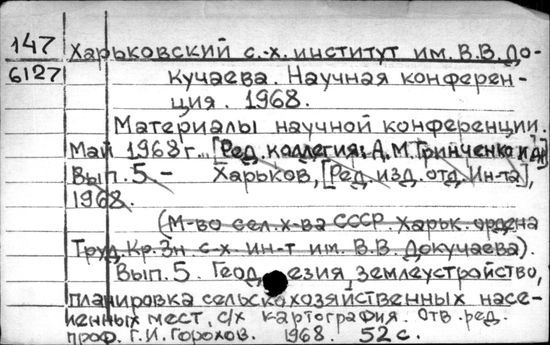 147
6127
Харьковский с.-х. институт им. В.В. До-
кучаева. Научная конферен-
ция. 1968.
Материалы научной конференции.
Май 1968 г... [Ред. коллегия: А.М. Гринченко и др]
Вып. 5. – Харьков, [Ред. изд. отд. Ин-та],
1968.
(М-во сел. х-ва СССР. Харьк. ордена
Труд. Кр. Зн с-х. ин-т им. В.В. Докучаева).
Вып. 5. Геодезия, землеустройство,
планировка сельскохозяйственных насе-
ленных мест, с/х картография. Отв. ред.
проф. Г.И. Горохов. 1968. 52 с.